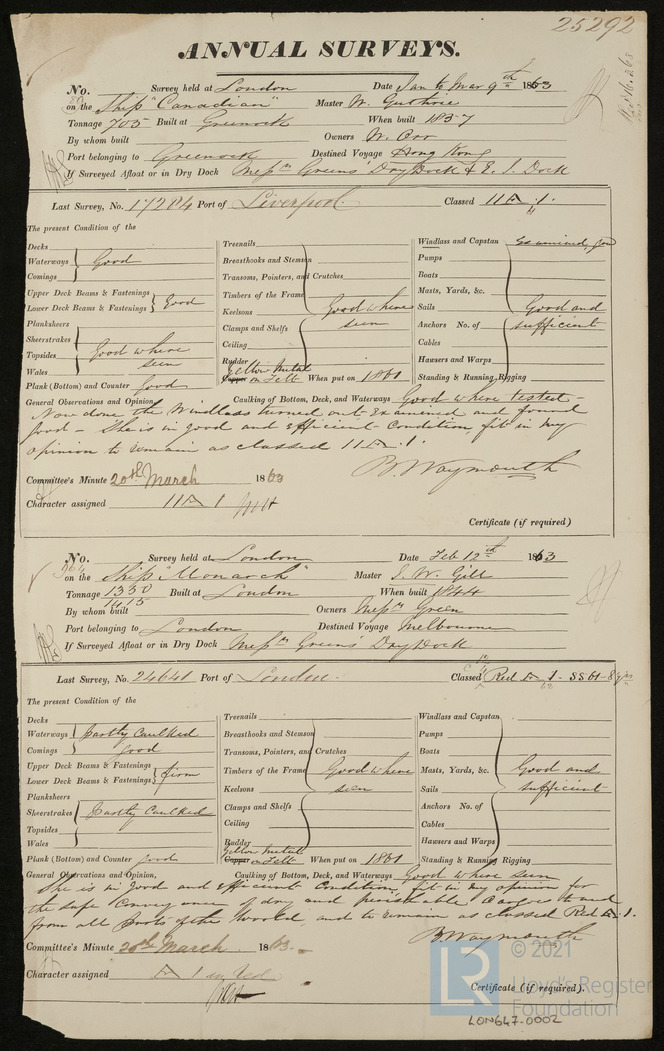 25292
ANNUAL SURVEYS.
No. Survey held at London Date Jan to Mar 9th 1863
on the Ship "Canadian" Master W. Guthrie
Tonnage 705 Built at Greenock When built 1837
By whom built Owners W. Orr
Port belonging to Greenock Destined Voyage Hong Kong
If Surveyed Afloat or in Dry Dock Messrs Greens Dry Dock & E. I. Dock
Last Survey, No. 17284 Port of Liverpool. Classed 11 A 1.
The present Condition of the
Decks
Waterways Good
Comings
Upper Deck Beams & Fastenings
Lower Deck Beams & Fastenings Good
Planksheers
Sheerstrakes
Topsides Good where seen
Wales
Plank (Bottom) and Counter good
Treenails
Breasthooks and Stemson
Transoms, Pointers, and Crutches
Timbers of the Frame
Keelsons Good where
Clamps and Shelfs seen
Ceiling
Rudder
Yellow Metal
Copper on Felt When put on 1861
Windlass and Capstan Examined, good
Pumps
Boats
Masts, Yards, &c.
Sails Good and
Anchors No. of sufficient
Cables
Hausers and Warps
Standing & Running Rigging
General Observations and Opinion, Caulking of Bottom, Deck, and Waterways Good where tested -
Now done the Windlass turned out examined and found
good - She is in good and efficient condition, fit in my
opinion to remain as classed 11 A 1.
B. Waymouth
Committee's Minute 20th March 1863
Character assigned 11 A 1
Certificate (if required)
No. Survey held at London Date Feb 12th 1863
on the Ship "Monarch" Master I. W. Gill
Tonnage 1350 Built at London When built 1844
1415
By whom built Owners Messrs Green
Port belonging to London Destined Voyage Melbourne
If Surveyed Afloat or in Dry Dock Messrs Greens Dry Dock
Last Survey, No. 24641 Port of London. Classed Red A 1 - SS 61 - 8 yrs
The present Condition of the
Decks
Waterways Partly Caulked
Comings good
Upper Deck Beams & Fastenings
Lower Deck Beams & Fastenings firm
Planksheers
Sheerstrakes Partly Caulked
Topsides
Wales
Plank (Bottom) and Counter good
Treenails
Breasthooks and Stemson
Transoms, Pointers, and Crutches
Timbers of the Frame Good where
Keelsons seen
Clamps and Shelfs
Ceiling
Rudder
Yellow Metal
Copper on Felt When put on 1861
Windlass and Capstan
Pumps
Boats
Masts, Yards, &c. Good and
Sails sufficient
Anchors No. of
Cables
Hausers and Warps
Standing & Running Rigging
General Observations and Opinion, Caulking of Bottom, Deck, and Waterways Good where seen
She is in good and efficient Condition, fit in my opinion for
the safe Conveyance of dry and perishable Cargoes to and
from all Parts of the World, and to remain as classed Red A 1.
B. Waymouth
Committee's Minute 20th March 1863.
Character assigned A 1 in Red
Certificate (if required).
LR © 2021
Lloyd's Register
Foundation
LON647-0002